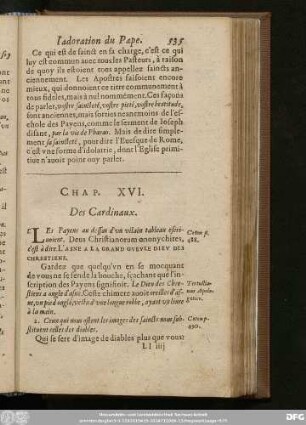 l'adoration du Pape. 535
Ce qui est de sainct en sa charge, c'est ce qui
luy est commun avec tous les Pasteurs, à raison
de quoy ils estoient tous appellés saincts an-
ciennement. Les Apostres faisoient encore
mieux, qui donnoient ce titre communement à
tous fideles, mais à nul nommément. Ces façons
de parler, vostre saincteté, vostre pieté, vostre beatitude,
sont anciennes, mais sorties neantmoins de l'es-
chole des Payens, comme le serment de Joseph
disant, par la vie de Pharao. Mais de dire simple-
ment sa saincteté, pour dire l'Evesque de Rome,
c'est une forme d'idolatrie, dont l'Eglise primi-
tive n'avoit point ouy parler.
CHAP. XVI.
Des Cardinaux.
LEs Payens au dessus d'un vilain tableau escri-
voient. Deus Christianorum ononychites,
c'est à dire. L'ASNE A LA GRANDE GUEULE DIEU DES
CHRESTIENS.
Gardez que quelqu'un en se mocquant
de vous ne se fende la bouche, sçachant que l'in-
scription des Payens signifioit. Le Dieu des Chre-
stiens a ongle d'asne. Ceste chimere avoit oreilles d'as-
ne, un pied onglé, vestu d'une longue robbe, ayant un livre
à la main.
2. Ceux qui nous ostent les images des saincts nous sub-
stituent celles des diables.
Qui se sert d'image de diables plus que vous
Ll iiij